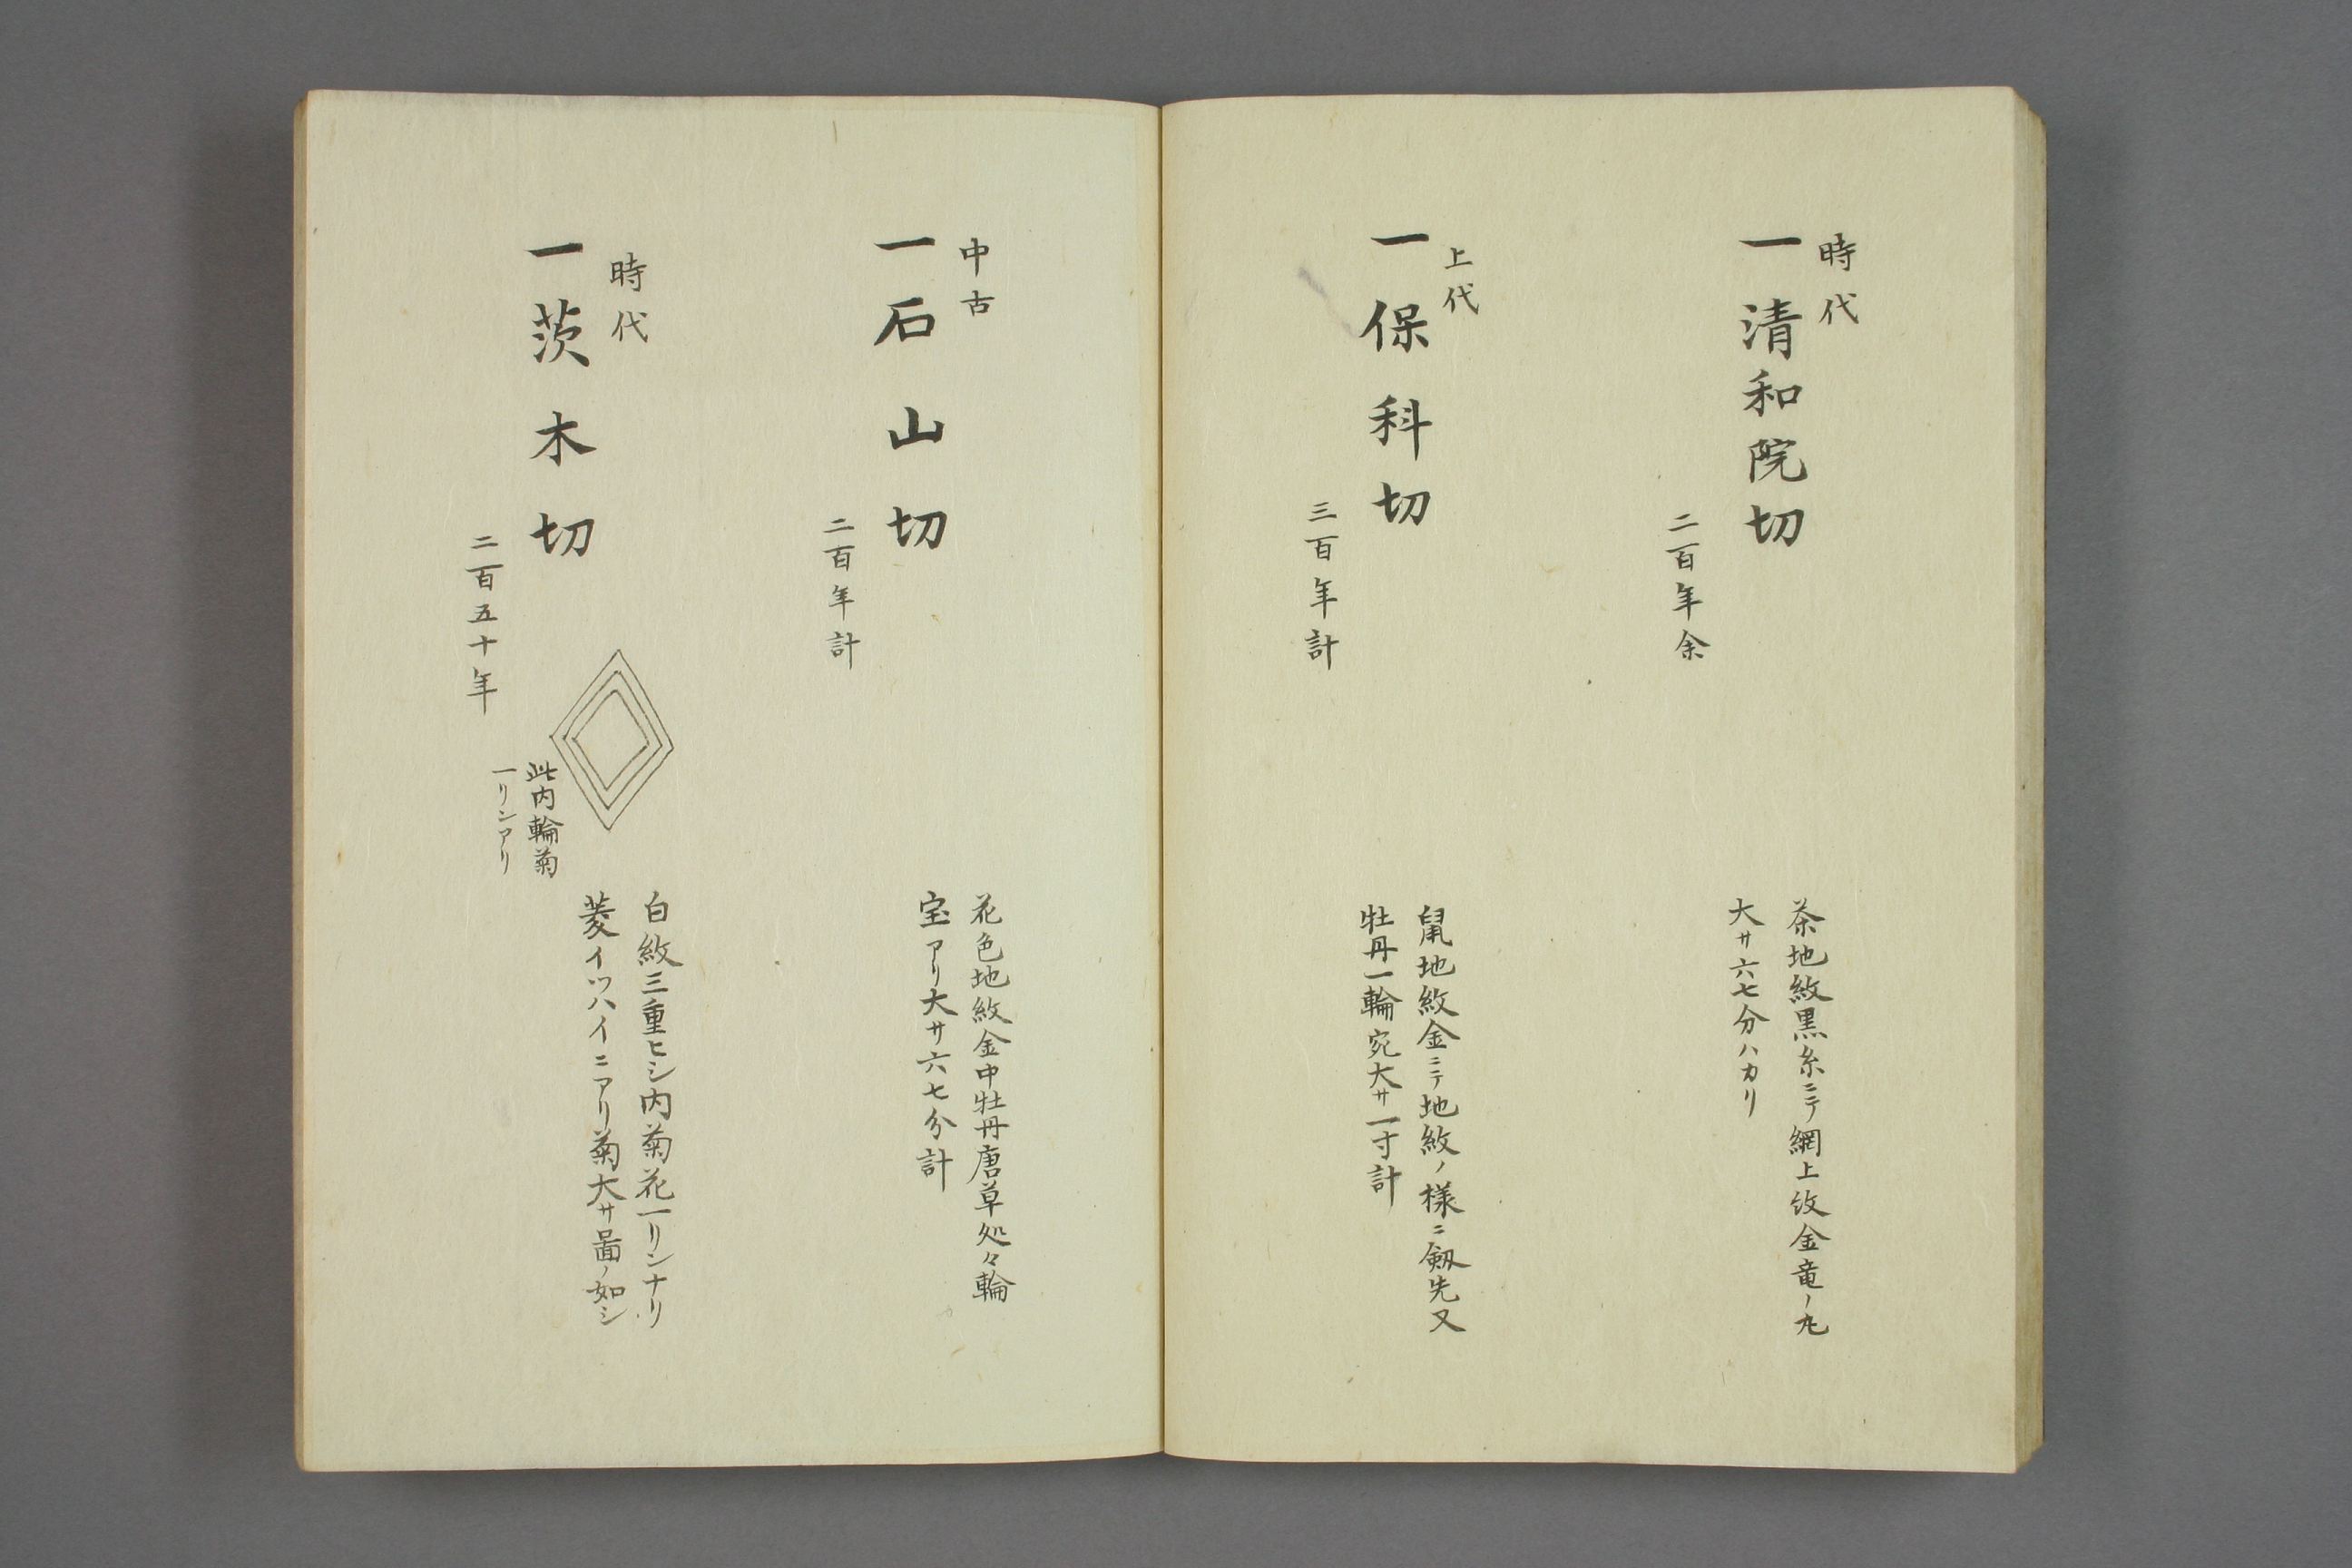 時代
一清和院切
二百年余
茶地紋黒糸ニテ網上紋金竜ノ丸
大サ六七分ハカリ
上代
一保科切
三百年計
鼠地紋金ニテ地紋ノ様ニ剱先又
牡丹一輪宛大サ一寸計
中古
一石山切
二百年計
花色地紋金中牡丹唐草処々輪
宝アリ大サ六七分計
時代
一茨木切
二百五十年
此内輪菊
一リンアリ
白紋三重ヒシ内菊花一リンナリ
菱イツハイニアリ菊大サ啚ノ如シ